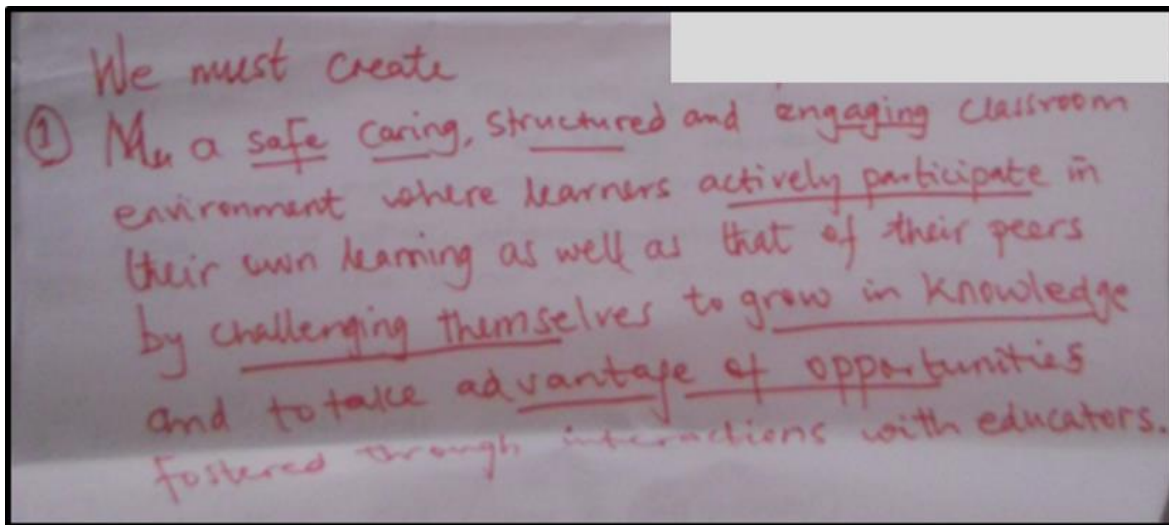 We must create
① a safe caring, structured and engaging classroom
environment where learners actively participate in
their own learning as well as that of their peers
by challenging themselves to grow in knowledge
and to take advantage of opportunities
fostered through interactions with educators.